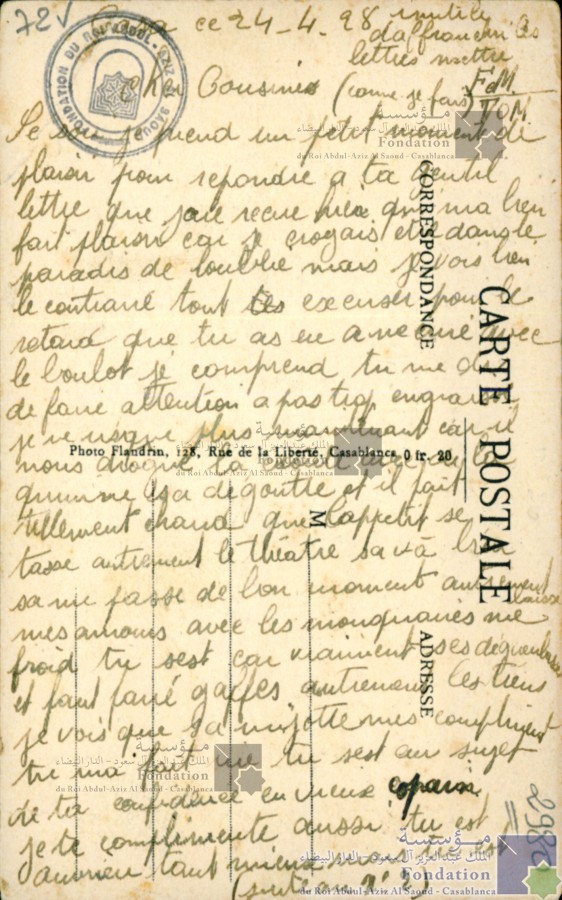 72
ce 24-4-28 inutile
d'affranchir les
lettres mettre
Cher Cousin (comme je fais) F.d.M.
T O M
Ce soir je prend un petit moment de
plaisir pour repondre a ta gentil
lettre que jaie recue hier qui ma bien
fait plaisir car je croyais etre dans le
paradis de loublie mais je vois bien
le contraire tout tes excuser pour le
retard que tu as eu a avec
le boulot je comprend tu me dis
de faire attention a pas trop engraisser
je ne risque plus maintenant car il
nous drogue
quinine sa degoutte et il fait
tillement chaud que lappetit se
tasse autrement le théatre sa va bien
sa me passe de bon moment autrement
mes amours avec les mouquaires me laisse
froid tu sest car vraiment ses degueulasse
et faut faire gaffes autrement les tiens
je vois que sa mijotte mes compliment
tu ma fait me tu sest au sujet
de ta confidence en vieux copain
je te complimente aussi tu est
tant mieux
(suite
CARTE POSTALE
CORRESPONDANCE
ADRESSE
M
Photo Flandrin, 128, Rue de la Liberté, Casablanca 0 fr. 20
298
FONDATION DU ROI ABDUL-AZIZ
مؤسسة
الملك عبد العزيز آل سعود - الدار البيضاء
Fondation
du Roi Abdul-Aziz Al Saoud - Casablanca
مؤسسة
الملك عبد العزيز آل سعود - الدار البيضاء
Fondation
du Roi Abdul-Aziz Al Saoud - Casablanca
مؤسسة
الملك عبد العزيز آل سعود - الدار البيضاء
Fondation
du Roi Abdul-Aziz Al Saoud - Casablanca
مؤسسة
الملك عبد العزيز آل سعود - الدار البيضاء
Fondation
du Roi Abdul-Aziz Al Saoud - Casablanca